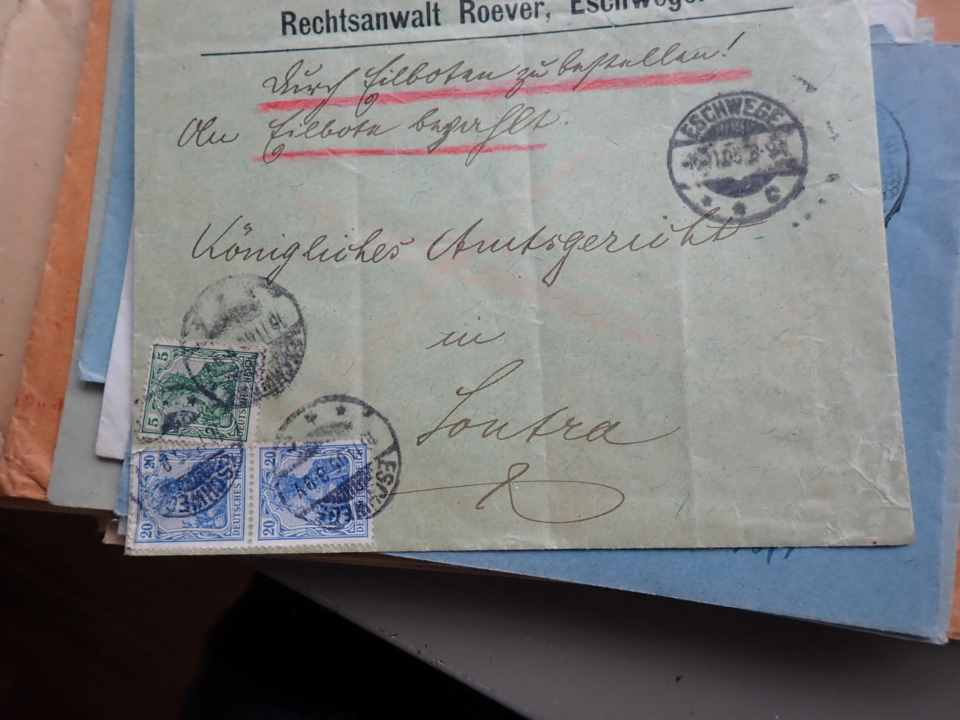 Rechtsanwalt Roever, Eschwege.
Durch Eilboten zu bestellen!
Eilbote bezahlt.
ESCHWEGE
C
Königliches Amtsgericht
in
Sontra
5
5
DEUTSCHES REICH
ESCHWEGE
20
20
DEUTSCHES
20
20
ESCHWEGE